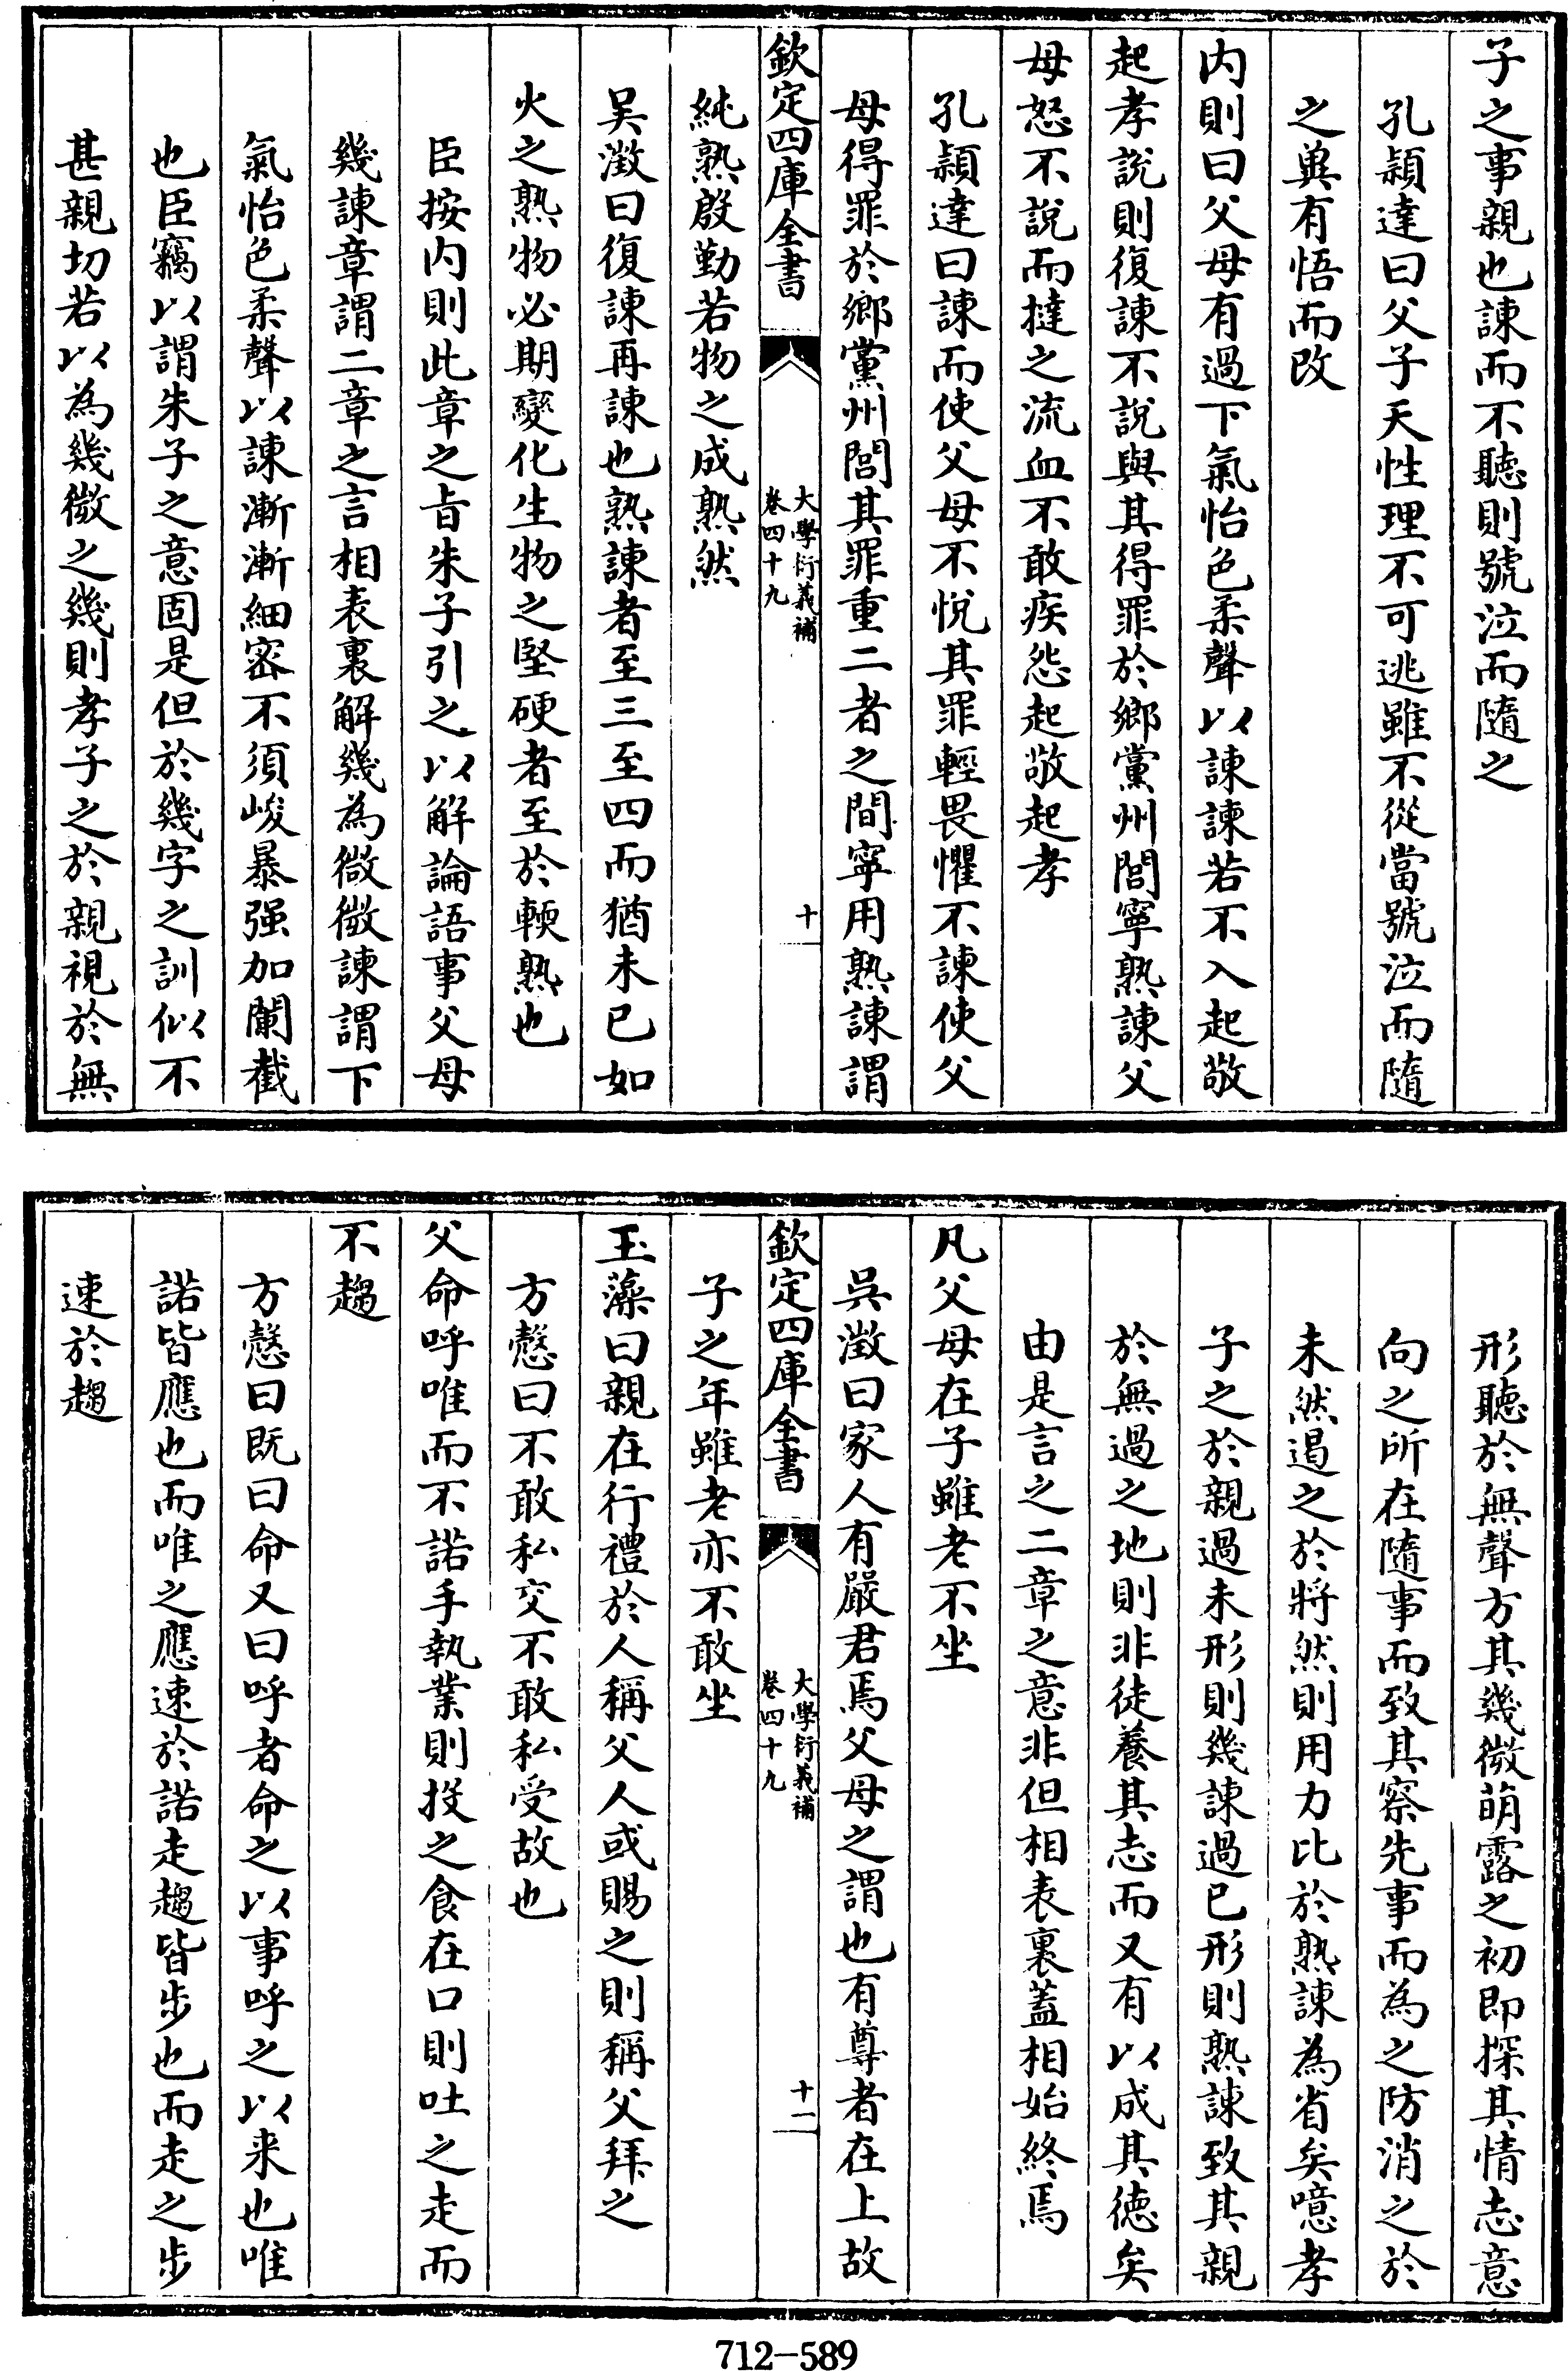 子之事親也諫而不聽則號泣而隨之
孔頴達曰父子天性理不可逃雖不從當號泣而隨
之冀有悟而改
内則曰父母有過下氣怡色柔聲以諫諫若不入起敬
起孝說則復諫不說與其得罪於鄉黨州閭寧熟諫父
母怒不說而撻之流血不敢疾怨起敬起孝
孔頴達曰諫而使父母不悅其罪輕畏懼不諫使父
母得罪於鄉黨州閭其罪重二者之間寧用熟諫謂
欽定四庫全書
大學衍義補
卷四十九
十
純熟殷勤若物之成熟然
吴澂曰復諫再諫也熟諫者至三至四而猶未已如
火之熟物必期變化生物之堅硬者至於輭熟也
臣按内則此章之旨朱子引之以解論語事父母
幾諫章謂二章之言相表裏解幾為微微諫謂下
氣怡色柔聲以諫漸漸細密不須峻暴强加闌截
也臣竊以謂朱子之意固是但於幾字之訓似不
甚親切若以為幾微之幾則孝子之於親視於無
形聽於無聲方其幾微萌露之初即探其情志意
向之所在隨事而致其察先事而為之防消之於
未然遏之於將然則用力比於熟諫為省矣噫孝
子之於親過未形則幾諫過已形則熟諫致其親
於無過之地則非徒養其志而又有以成其德矣
由是言之二章之意非但相表裏蓋相始終焉
凡父母在子雖老不坐
吳澂曰家人有嚴君焉父母之謂也有尊者在上故
欽定四庫全書
大學衍義補
卷四十九
十一
子之年雖老亦不敢坐
玉藻曰親在行禮於人稱父人或賜之則稱父拜之
方慤曰不敢私交不敢私受故也
父命呼唯而不諾手執業則投之食在口則吐之走而
不趨
方慤曰既曰命又曰呼者命之以事呼之以来也唯
諾皆應也而唯之應速於諾走趨皆步也而走之步
速於趨
712-589